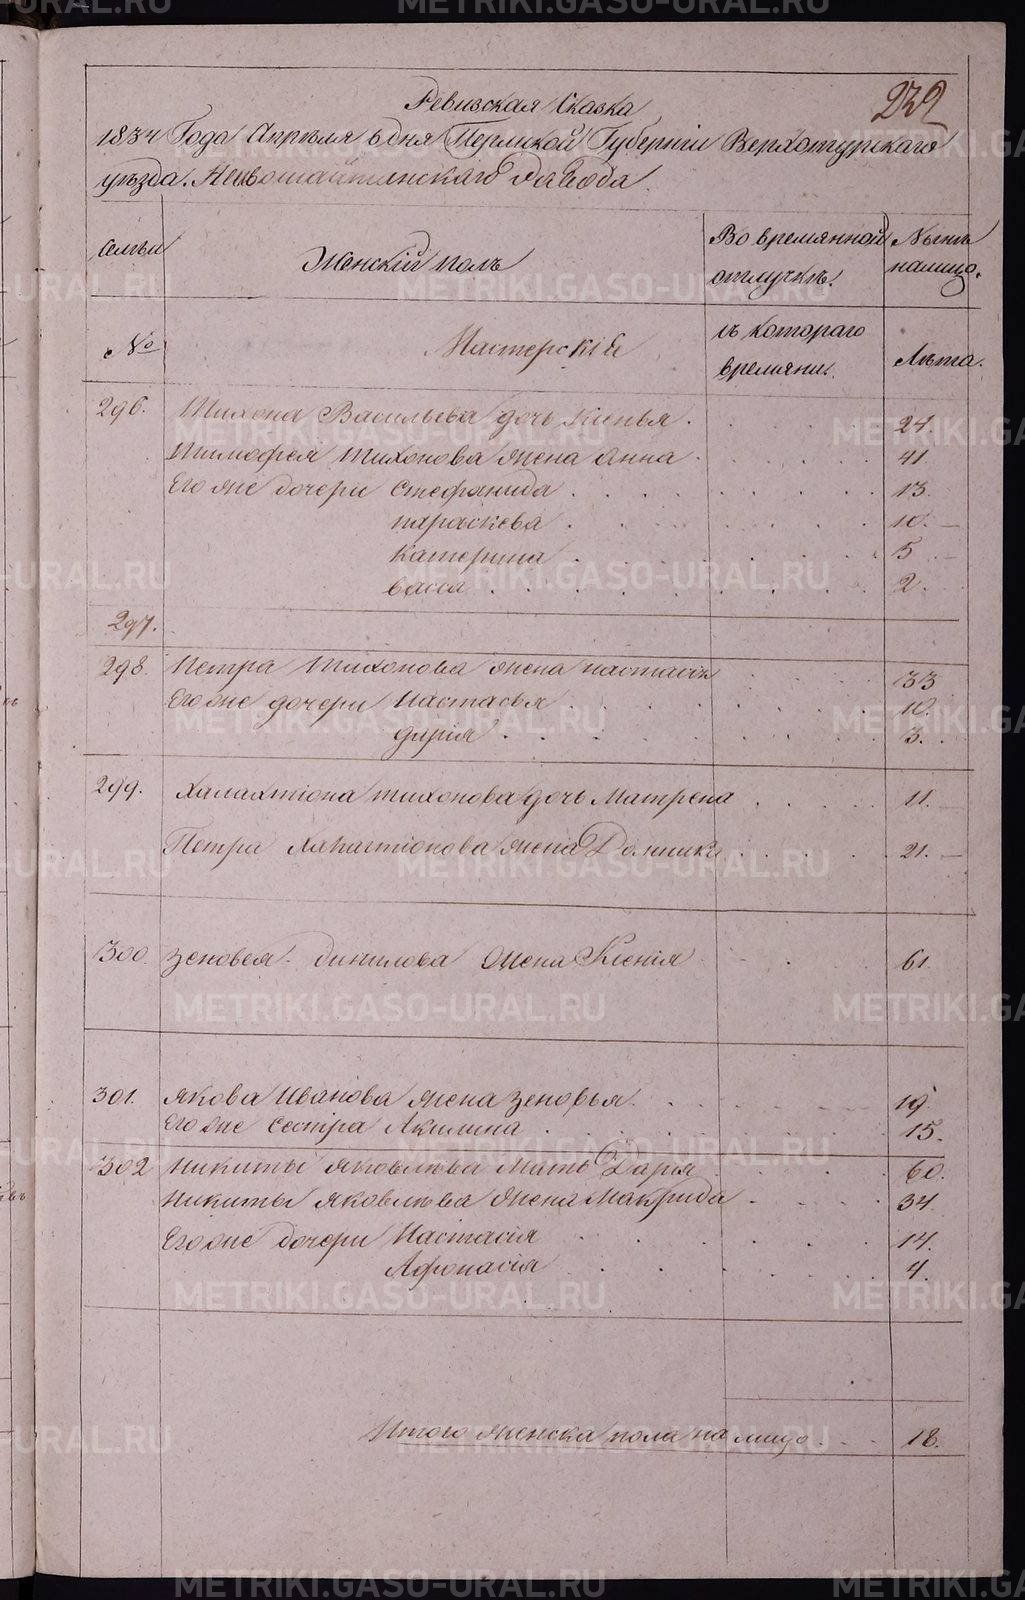 232
Ревизская Сказка
1834 Года Апреля 6 дня Пермской Губернии Верхотурскаго
уѣзда. Невошайтанскаго Завода
Семьи
Женскій полъ
Во времянной
отлучкѣ.
Нынѣ
налицо.
№
Мастерскія
съ котораго
времяни.
Лѣта.
296. Тихона Васильева дочь Ксенья 24.
Тимофея Тихонова жена Анна 41
Его же дочери Стефанида 13.
параскева 10.
катерина 5
васса 2.
297.
298. Петра Тихонова жена настасія 33
Его же дочери Настасья 10.
дарія 3.
299. Халахтіона тихонова дочь Матрена 11.
Петра Халахтіонова жена Домника 21.
300. Зеновея Данилова жена Ксенія 61.
301. якова Иванова жена Зеновья 19.
Его же сестра Акилина 15.
302 Никиты яковлева мать Дарья 60.
Никиты яковлева жена Макрида 34.
Его же дочери Настасія 14.
Афонасія 4.
Итого женска пола на лицо 18.
METRIKI.GASO-URAL.RU